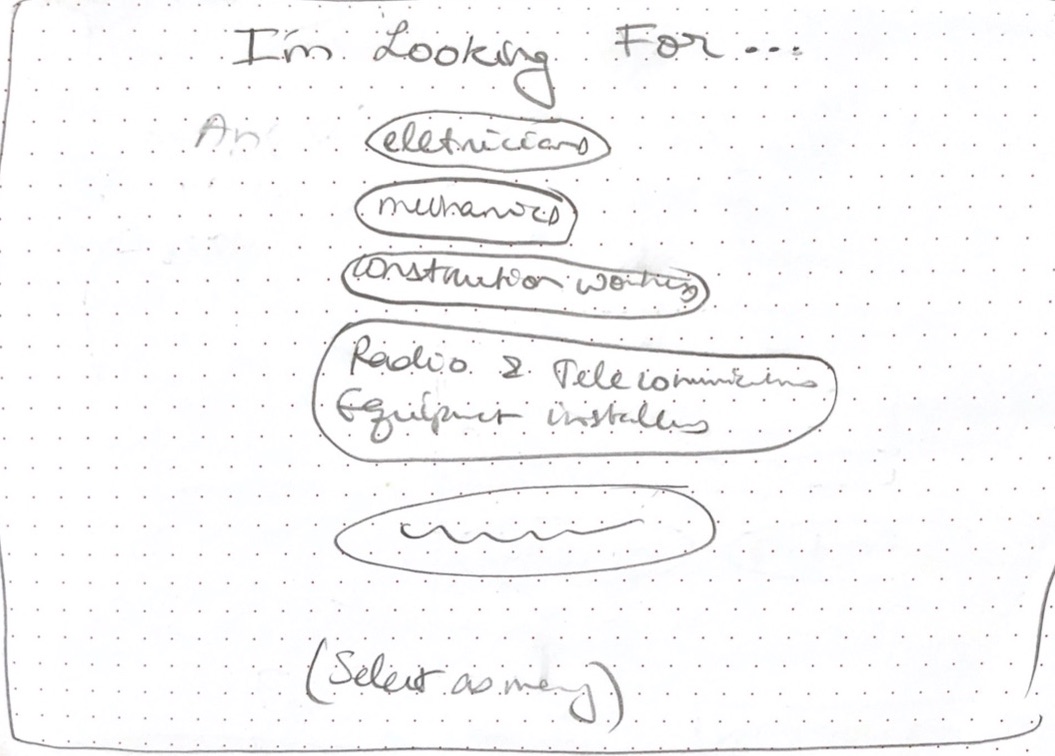 I'm Looking For...
An
eletricians
mechanics
construction workers
Radio & Telecommunications
Equipment installers
(Select as many)